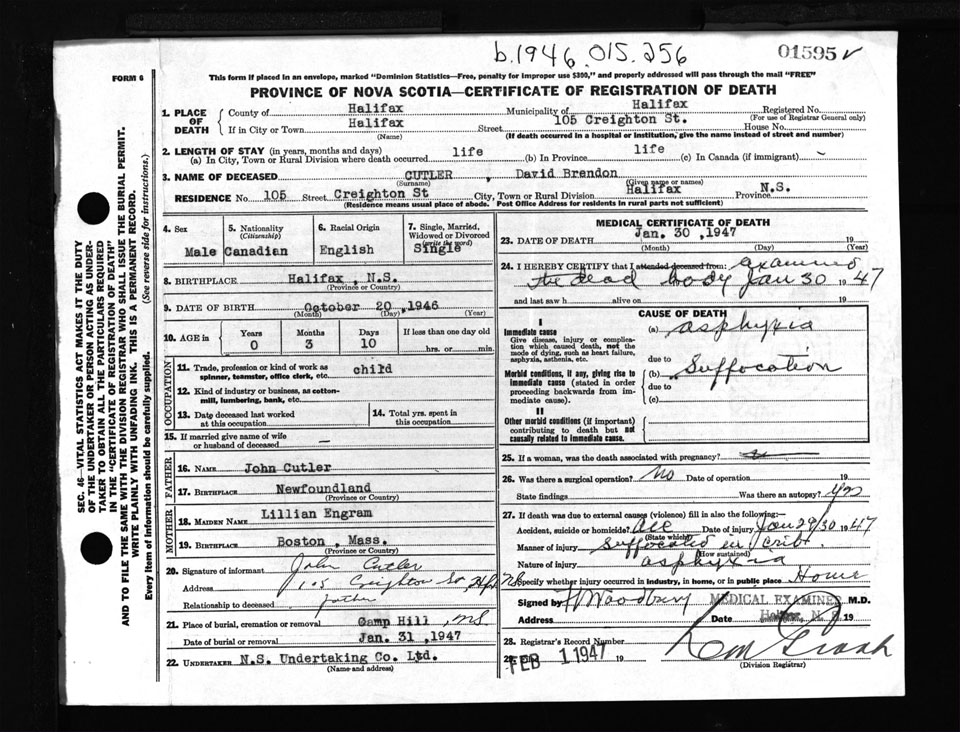 b.1946.015.256
01595 v
FORM 6
This form if placed in an envelope, marked "Dominion Statistics—Free, penalty for improper use $300," and properly addressed will pass through the mail "FREE"
PROVINCE OF NOVA SCOTIA—CERTIFICATE OF REGISTRATION OF DEATH
SEC. 46—VITAL STATISTICS ACT MAKES IT THE DUTY
OF THE UNDERTAKER OR PERSON ACTING AS UNDER-
TAKER TO OBTAIN ALL THE PARTICULARS REQUIRED
IN THE "CERTIFICATE OF REGISTRATION OF DEATH"
AND TO FILE THE SAME WITH THE DIVISION REGISTRAR WHO SHALL ISSUE THE BURIAL PERMIT.
WRITE PLAINLY WITH UNFADING INK. THIS IS A PERMANENT RECORD.
Every item of information should be carefully supplied. (See reverse side for instructions.)
1. PLACE OF DEATH
County of Halifax Municipality of Halifax Registered No.
(For use of Registrar General only)
If in City or Town Halifax Street 105 Creighton St. House No.
(Name) (If death occurred in a hospital or institution, give the name instead of street and number)
2. LENGTH OF STAY (in years, months and days)
(a) In City, Town or Rural Division where death occurred life (b) In Province life (c) In Canada (if immigrant)
3. NAME OF DECEASED CUTLER , David Brendon
(Surname) (Given name or names)
RESIDENCE No. 105 Street Creighton St City, Town or Rural Division Halifax Province N.S.
(Residence means usual place of abode. Post Office Address for residents in rural parts not sufficient)
4. Sex
Male
5. Nationality
(Citizenship)
Canadian
6. Racial Origin
English
7. Single, Married,
Widowed or Divorced
(write the word)
Single
8. BIRTHPLACE Halifax, N.S.
(Province or Country)
9. DATE OF BIRTH October 20, 1946
(Month) (Day) (Year)
10. AGE in
Years Months Days If less than one day old
0 3 10 hrs. or min.
OCCUPATION
11. Trade, profession or kind of work as
spinner, teamster, office clerk, etc. child
12. Kind of industry or business, as cotton-
mill, lumbering, bank, etc.
13. Date deceased last worked
at this occupation
14. Total yrs. spent in
this occupation
15. If married give name of wife
or husband of deceased —
FATHER
16. NAME John Cutler
17. BIRTHPLACE Newfoundland
(Province or Country)
MOTHER
18. MAIDEN NAME Lillian Engram
19. BIRTHPLACE Boston, Mass.
(Province or Country)
20. Signature of informant John Cutler
Address 105 Creighton St, Hfx NS
Relationship to deceased father
21. Place of burial, cremation or removal Camp Hill, NS
Date of burial or removal Jan. 31, 1947
22. UNDERTAKER N.S. Undertaking Co. Ltd.
(Name and address)
MEDICAL CERTIFICATE OF DEATH
23. DATE OF DEATH Jan. 30, 1947 19
(Month) (Day) (Year)
24. I HEREBY CERTIFY that I attended deceased from: examined
the dead body Jan 30 1947
and last saw h alive on 19
CAUSE OF DEATH
I
Immediate cause
Give disease, injury or complica-
tion which caused death, not the
mode of dying, such as heart failure,
asphyxia, asthenia, etc.
(a) asphyxia
due to
Morbid conditions, if any, giving rise to
immediate cause (stated in order
proceeding backwards from im-
mediate cause).
(b) Suffocation
due to
(c)
II
Other morbid conditions (if important)
contributing to death but not
causally related to immediate cause.
25. If a woman, was the death associated with pregnancy?
26. Was there a surgical operation? No Date of operation 19
State findings Was there an autopsy? Yes
27. If death was due to external causes (violence) fill in also the following:—
Accident, suicide or homicide? Acc Date of injury Jan 29/30 1947
(State which)
Manner of injury Suffocated in crib.
(How sustained)
Nature of injury asphyxia
Specify whether injury occurred in industry, in home, or in public place Home
Signed by H Woodbury MEDICAL EXAMINER M.D.
Address Date Halifax, N. S. 19
28. Registrar's Record Number
FEB 1 1947 19
(Division Registrar)